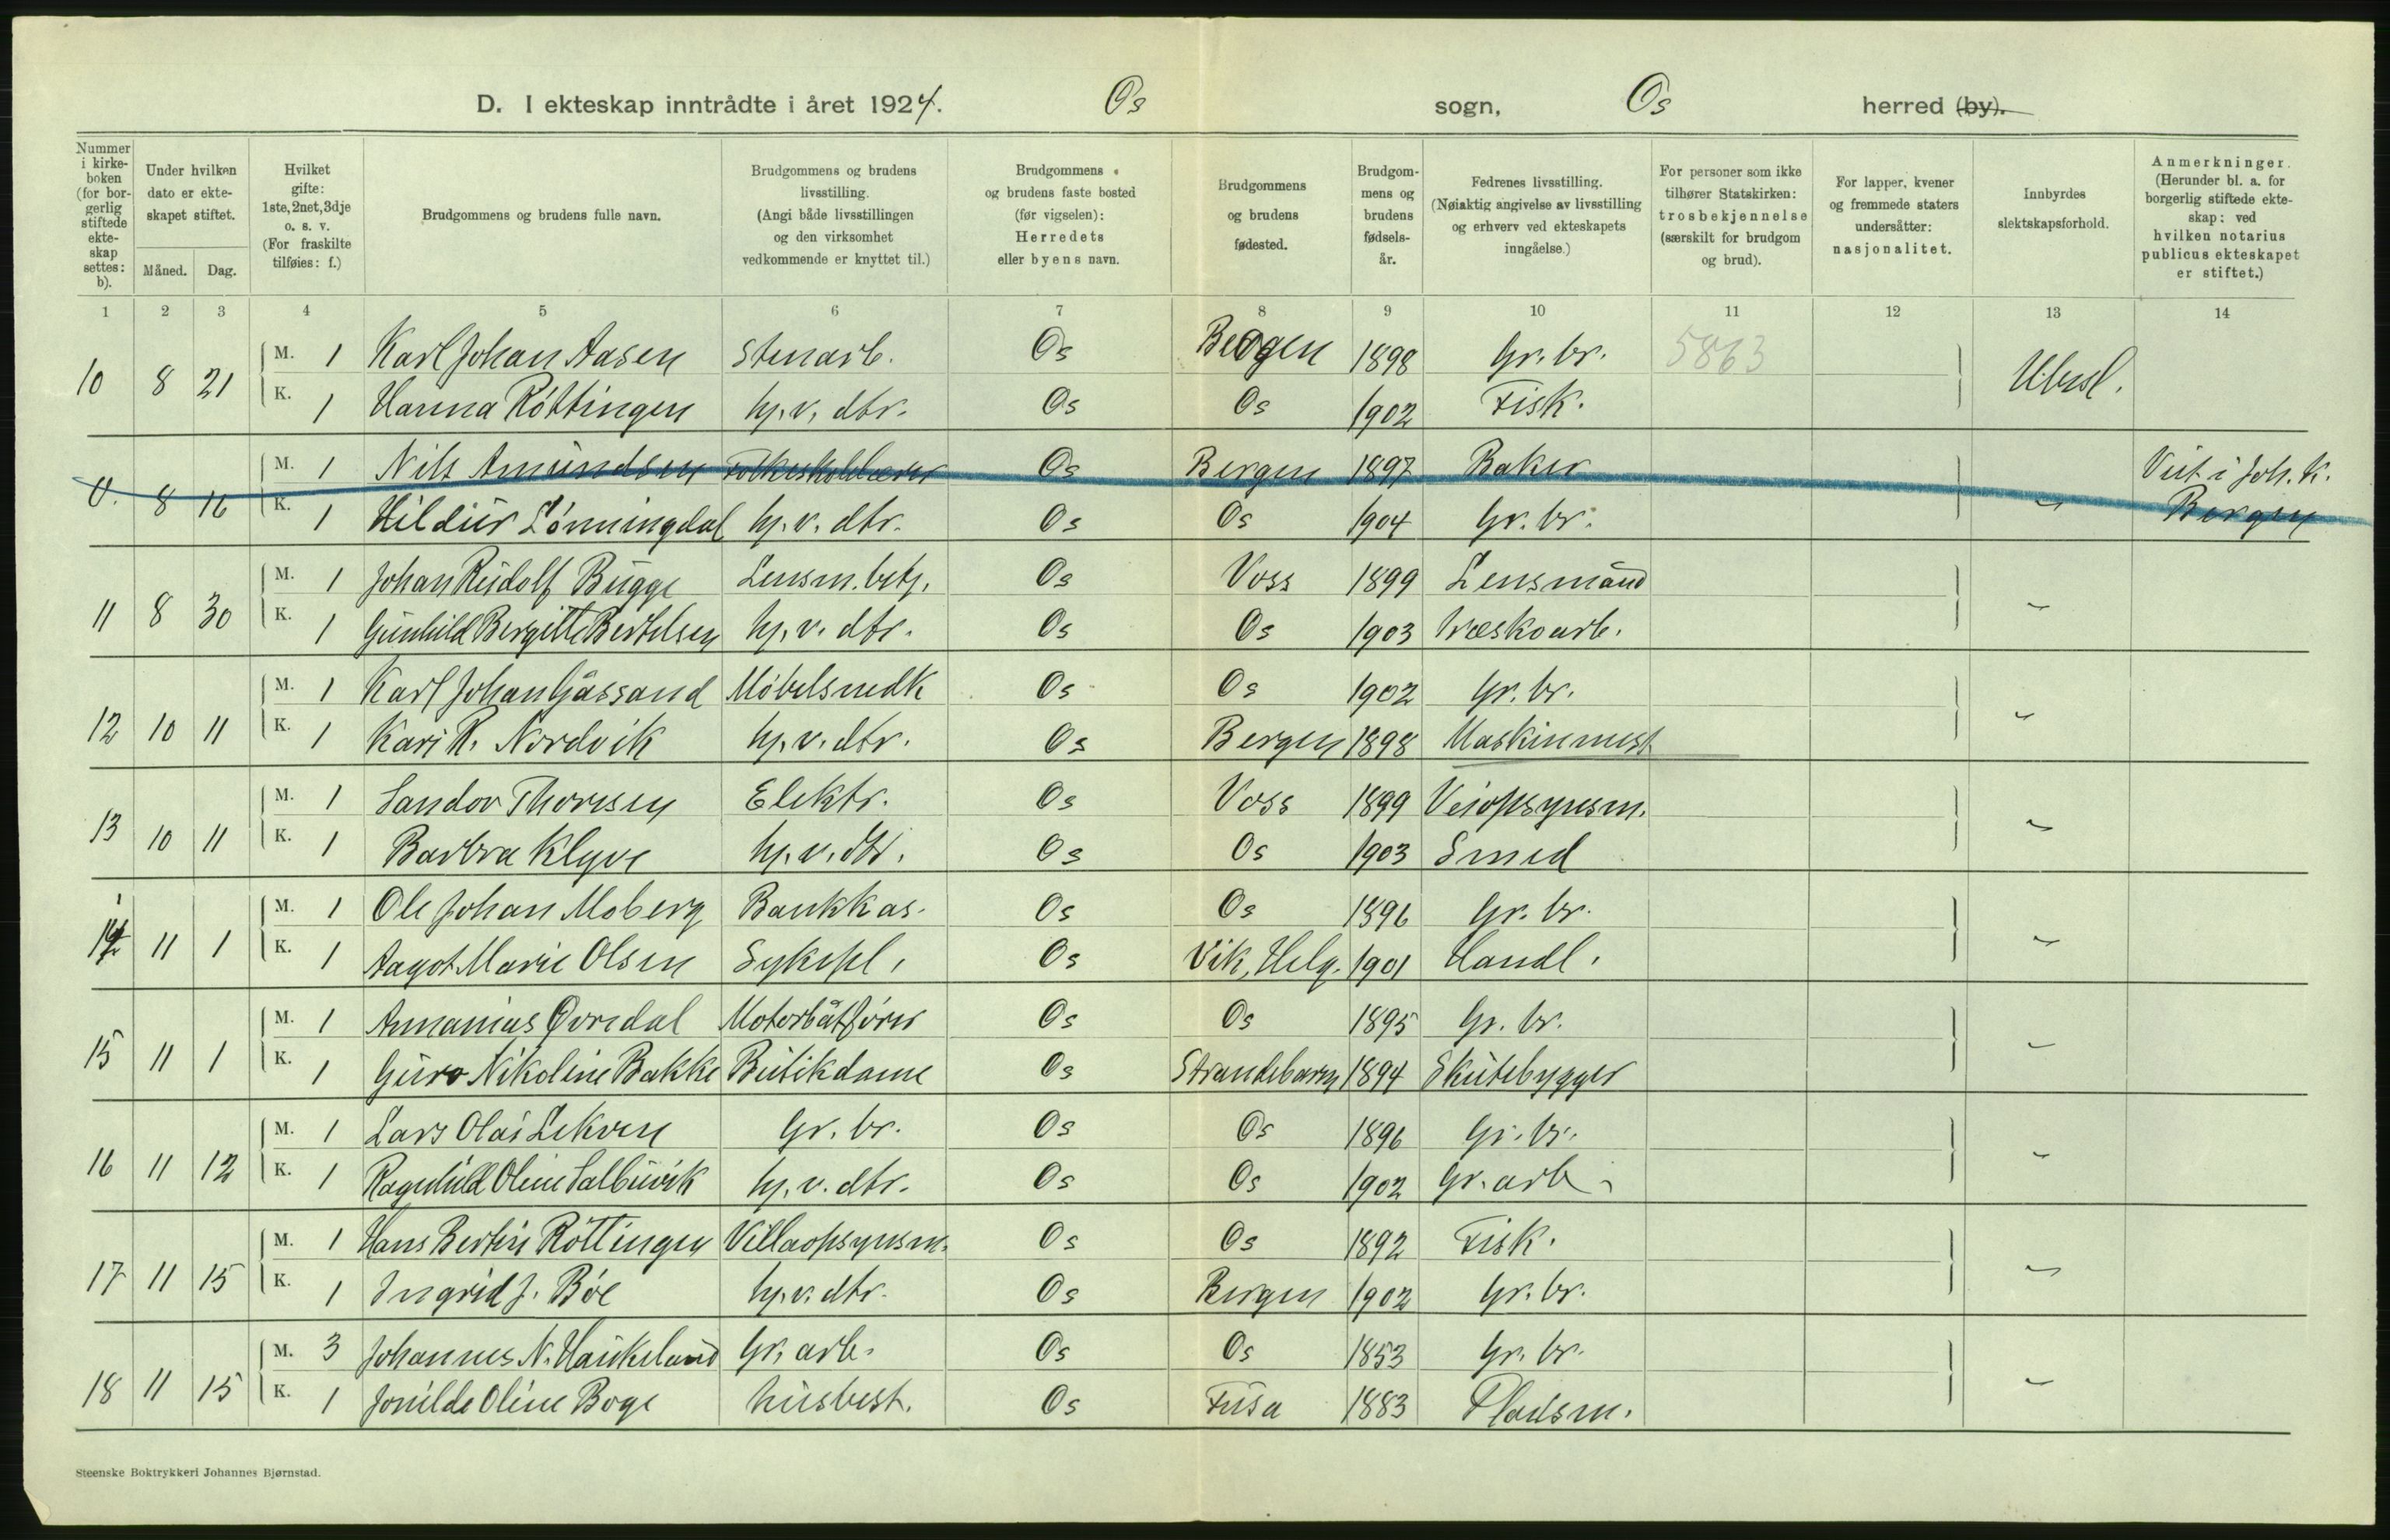 D. I ekteskap inntrådte i året 1924. Os sogn, Os herred (by).
Nummer i kirke-boken (for bor-gerlig stiftede ekte-skap settes: b).
Under hvilken dato er ekte-skapet stiftet.
Måned. Dag.
Hvilket gifte: 1ste, 2net, 3dje o. s. v. (For fraskilte tilføies: f.)
Brudgommens og brudens fulle navn.
Brudgommens og brudens livsstilling. (Angi både livsstillingen og den virksomhet vedkommende er knyttet til.)
Brudgommens og brudens faste bosted (før vigselen): Herredets eller byens navn.
Brudgommens og brudens fødested.
Brudgom-mens og brudens fødsels-år.
Fedrenes livsstilling. (Nøiaktig angivelse av livsstilling og erhverv ved ekteskapets inngåelse.)
For personer som ikke tilhører Statskirken: trosbekjennelse (særskilt for brudgom og brud).
For lapper, kvener og fremmede staters undersåtter: nasjonalitet.
Innbyrdes slektskapsforhold.
Anmerkninger. (Herunder bl. a. for borgerlig stiftede ekte-skap: ved hvilken notarius publicus ekteskapet er stiftet.)
1 2 3 4 5 6 7 8 9 10 11 12 13 14
10 8 21 M. 1 Karl Johan Aasen Stenarb. Os Bergen 1898 Gr. br. 5863 Ubesl.
K. 1 Hanna Röttingen hj. v. dtr. Os Os 1902 Fisk.
8 16 M. 1 Nils Amundsen Folkeskolelærer Os Bergen 1897 Baker " Viet i Joh. K. Bergen
K. 1 Hildur Lönningdal hj. v. dtr. Os Os 1904 Gr. br.
11 8 30 M. 1 Johan Rudolf Bugge Lensm. betj. Os Voss 1899 Lensmand "
K. 1 Gunhild Bergitte Bertelsen hj. v. dtr. Os Os 1903 Træskoarb.
12 10 11 M. 1 Karl Johan Gåssand Möbelsnedk Os Os 1902 Gr. br. "
K. 1 Kari R. Nordvik hj. v. dtr. Os Bergen 1898 Maskinmest
13 10 11 M. 1 Sandor Thoresen Elektr. Os Voss 1899 Veiopsynsm. "
K. 1 Barbra Klyve hj. v. dtr. Os Os 1903 Smed
14 11 1 M. 1 Ole Johan Moberg Bankkas. Os Os 1896 Gr. br. "
K. 1 Aagot Marie Olsen Sykepl. Os Vik, Helg. 1901 Handl.
15 11 1 M. 1 Annanias Øvredal Motorbåtförer Os Os 1895 Gr. br. "
K. 1 Guro Nikoline Bakke Butikdame Os Strandebarm 1894 Skutebygger
16 11 12 M. 1 Lars Olai Lekven Gr. br. Os Os 1896 Gr. br. "
K. 1 Ragnhild Oline Salbuvik hj. v. dtr. Os Os 1902 Gr. arb.
17 11 15 M. 1 Hans Bertin Röttingen Villaopsynsm. Os Os 1892 Fisk. "
K. 1 Ingrid J. Böe hj. v. dtr. Os Bergen 1902 Gr. br.
18 11 15 M. 3 Johannes N. Haukeland Gr. arb. Os Os 1853 Gr. br. "
K. 1 Jonilde Oline Boge husbest. Os Fusa 1883 Pladsm.
Steenske Boktrykkeri Johannes Bjørnstad.